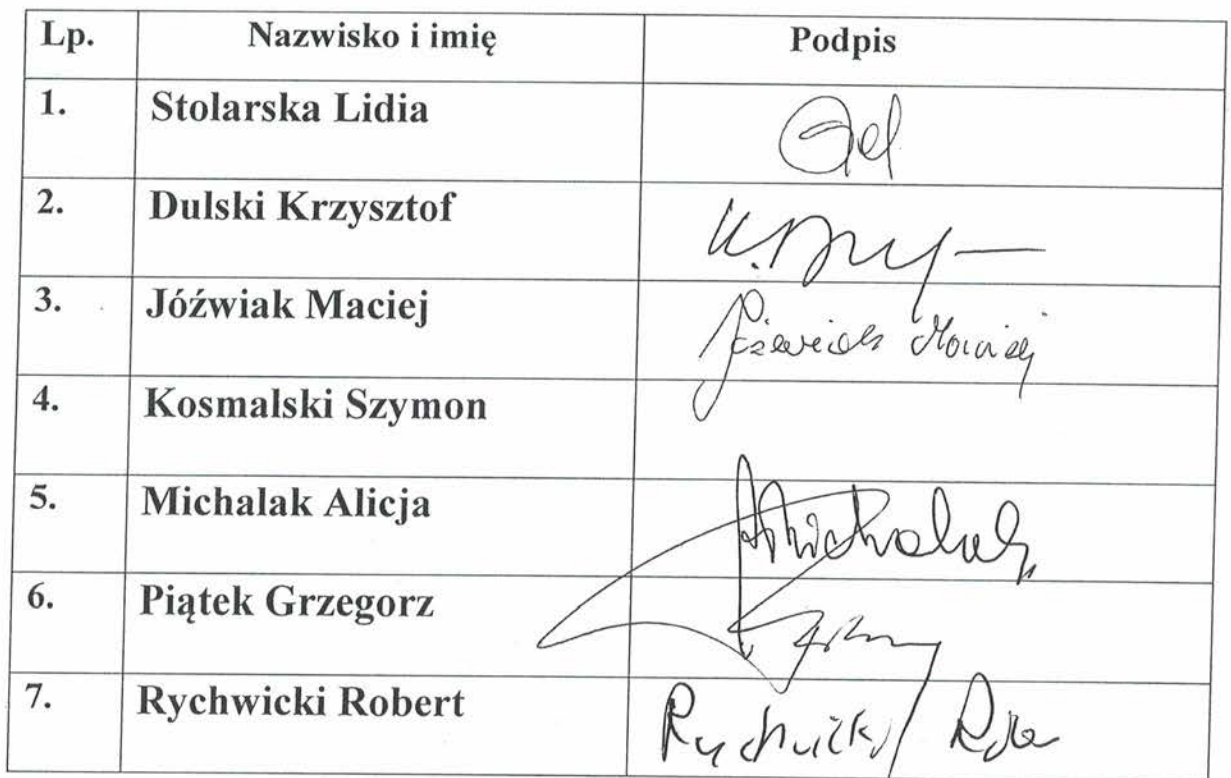 Lp. Nazwisko i imię Podpis
1. Stolarska Lidia
2. Dulski Krzysztof
3. Jóźwiak Maciej Jóźwiak Maciej
4. Kosmalski Szymon
5. Michalak Alicja AMichalak
6. Piątek Grzegorz
7. Rychwicki Robert Rychwicki